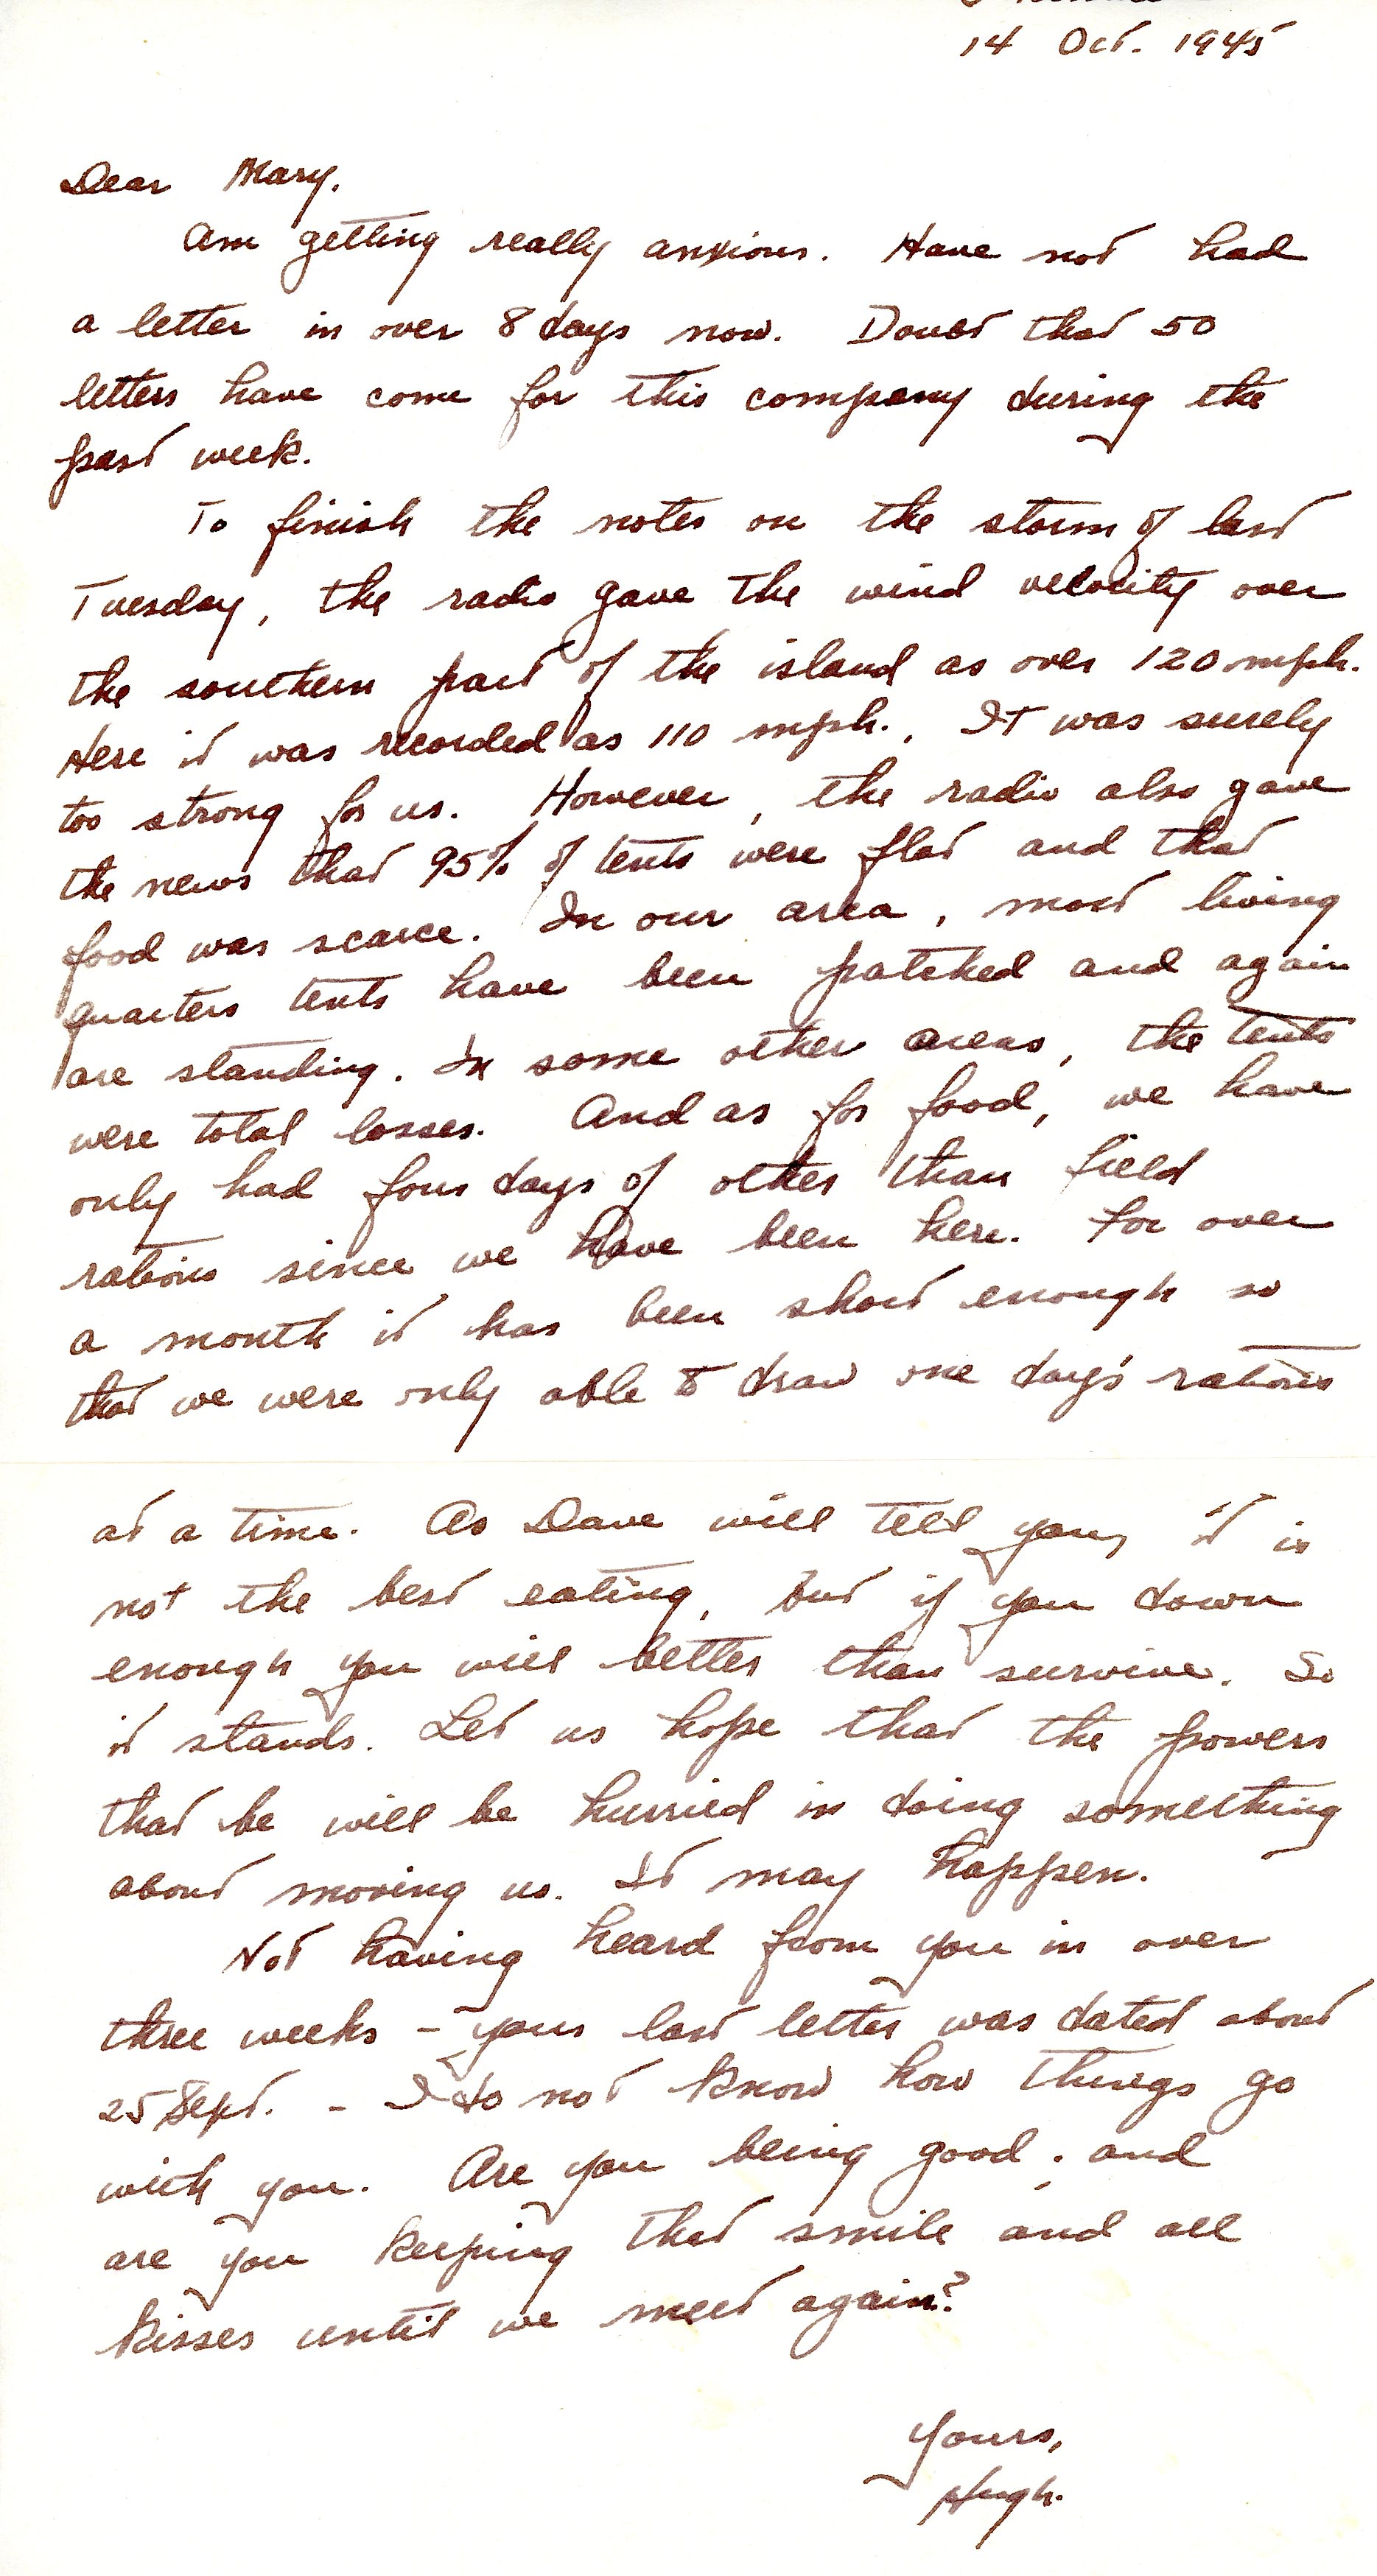 14 Oct. 1945
Dear Mary,
Am getting really anxious. Have not had
a letter in over 8 days now. Doubt that 50
letters have come for this company during the
past week.
To finish the notes on the storm of last
Tuesday, the radio gave the wind velocity over
the southern part of the island as over 120 mph.
Here it was recorded as 110 mph., It was surely
too strong for us. However, the radio also gave
the news that 95% of tents were flat and that
food was scarce. In our area, most living
quarters tents have been patched and again
are standing. In some other areas, the tents
were total losses. And as for food, we have
only had four days of other than field
rations since we have been here. For over
a month it has been short enough so
that we were only able to draw one day's rations
at a time. As Dave will tell you, it is
not the best eating, but if you down
enough you will better than survive. So
it stands. Let us hope that the powers
that be will be hurried in doing something
about moving us. It may happen.
Not having heard from you in over
three weeks - your last letter was dated about
25 Sept. - I do not know how things go
with you. Are you being good, and
are you keeping that smile and all
kisses until we meet again?
Yours,
Hugh.